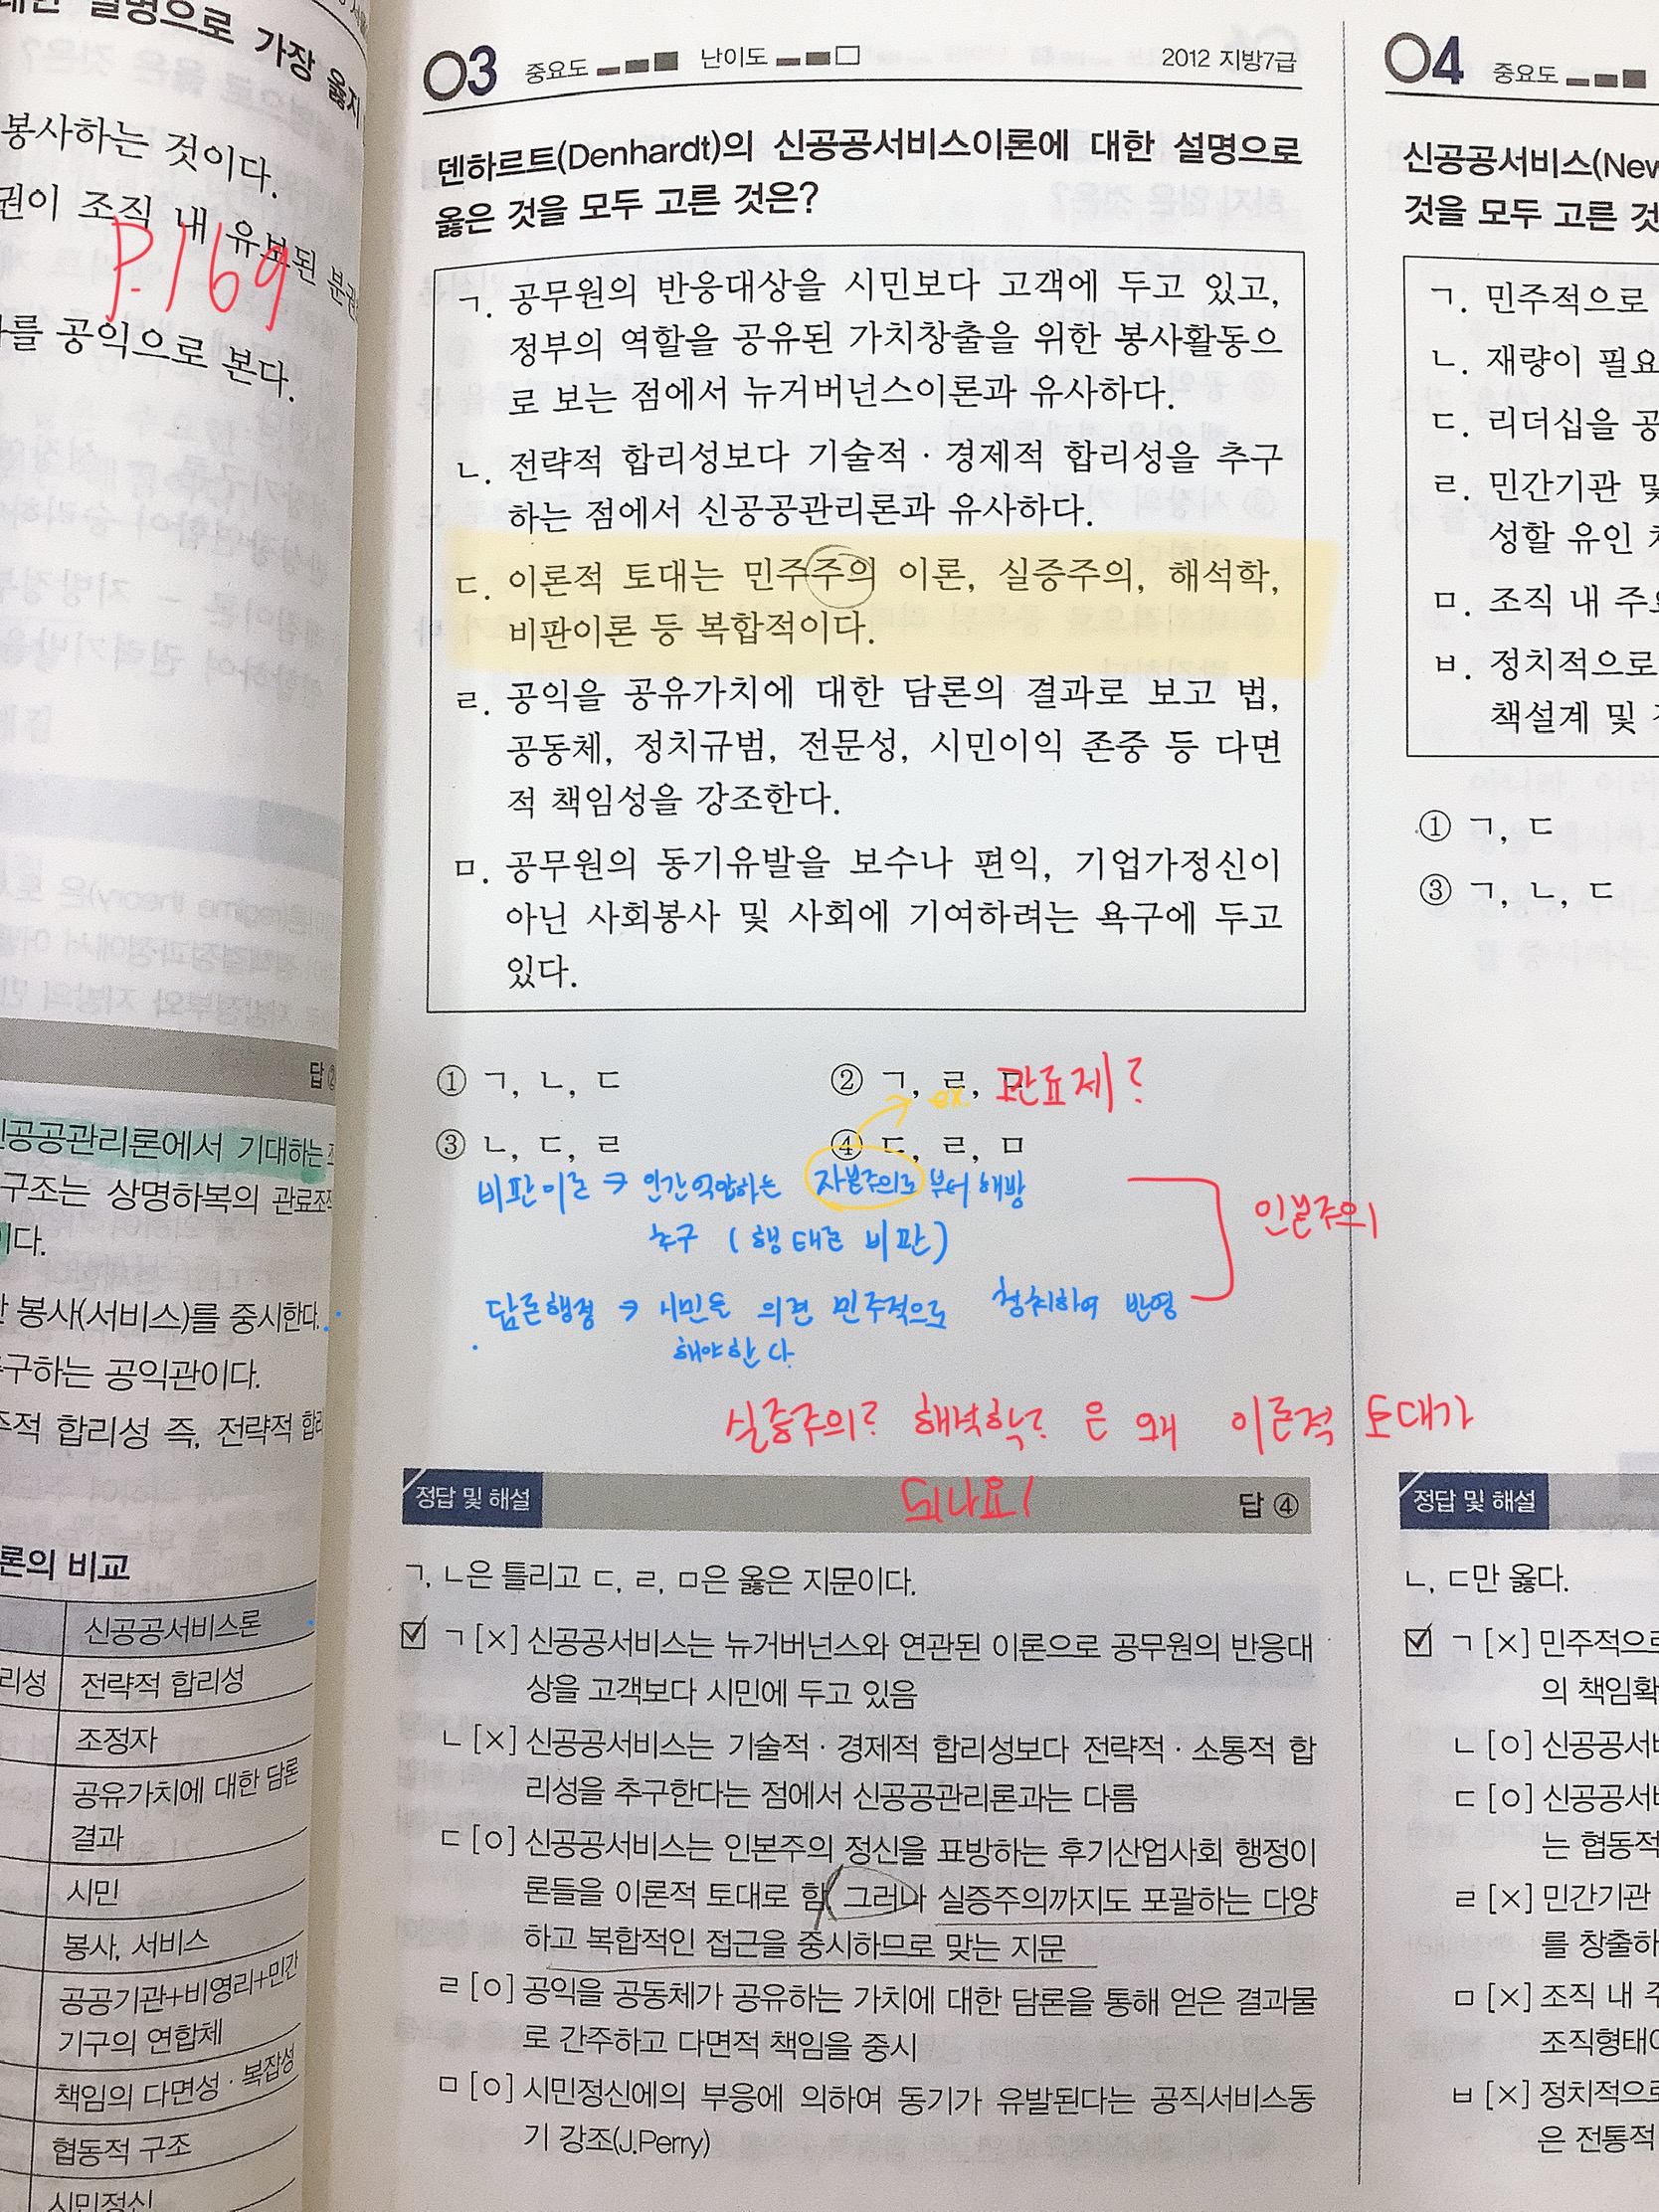 봉사하는 것이다.
권이 조직 내 유보된 분권
P.169
를 공익으로 본다.
답 ②
신공공관리론에서 기대하는 조
구조는 상명하복의 관료조직
이다.
봉사(서비스)를 중시한다.
구하는 공익관이다.
주적 합리성 즉, 전략적 합리
론의 비교
신공공서비스론
리성 전략적 합리성
조정자
공유가치에 대한 담론
결과
시민
봉사, 서비스
공공기관+비영리+민간
기구의 연합체
책임의 다면성·복잡성
협동적 구조
시민정신
03 중요도 난이도 2012 지방7급
덴하르트(Denhardt)의 신공공서비스이론에 대한 설명으로
옳은 것을 모두 고른 것은?
ㄱ. 공무원의 반응대상을 시민보다 고객에 두고 있고,
정부의 역할을 공유된 가치창출을 위한 봉사활동으
로 보는 점에서 뉴거버넌스이론과 유사하다.
ㄴ. 전략적 합리성보다 기술적·경제적 합리성을 추구
하는 점에서 신공공관리론과 유사하다.
ㄷ. 이론적 토대는 민주주의 이론, 실증주의, 해석학,
비판이론 등 복합적이다.
ㄹ. 공익을 공유가치에 대한 담론의 결과로 보고 법,
공동체, 정치규범, 전문성, 시민이익 존중 등 다면
적 책임성을 강조한다.
ㅁ. 공무원의 동기유발을 보수나 편익, 기업가정신이
아닌 사회봉사 및 사회에 기여하려는 욕구에 두고
있다.
① ㄱ, ㄴ, ㄷ ② ㄱ, ㄹ, ㅁ
ex. 관료제?
③ ㄴ, ㄷ, ㄹ ④ ㄷ, ㄹ, ㅁ
비판이론 → 인간억압하는 자본주의로부터 해방
추구 (행태론 비판)
인본주의
담론행정 → 시민들 의견 민주적으로 청취하여 반영
해야한다
실증주의? 해석학? 은 왜 이론적 토대가
되나요!
정답 및 해설 답 ④
ㄱ, ㄴ은 틀리고 ㄷ, ㄹ, ㅁ은 옳은 지문이다.
ㄱ [×] 신공공서비스는 뉴거버넌스와 연관된 이론으로 공무원의 반응대
상을 고객보다 시민에 두고 있음
ㄴ [×] 신공공서비스는 기술적·경제적 합리성보다 전략적·소통적 합
리성을 추구한다는 점에서 신공공관리론과는 다름
ㄷ [ㅇ] 신공공서비스는 인본주의 정신을 표방하는 후기산업사회 행정이
론들을 이론적 토대로 함 그러나 실증주의까지도 포괄하는 다양
하고 복합적인 접근을 중시하므로 맞는 지문
ㄹ [ㅇ] 공익을 공동체가 공유하는 가치에 대한 담론을 통해 얻은 결과물
로 간주하고 다면적 책임을 중시
ㅁ [ㅇ] 시민정신에의 부응에 의하여 동기가 유발된다는 공직서비스동
기 강조(J.Perry)
04 중요도
신공공서비스(New
것을 모두 고른 것
ㄱ. 민주적으로
ㄴ. 재량이 필요
ㄷ. 리더십을 공
ㄹ. 민간기관 및
성할 유인
ㅁ. 조직 내 주요
ㅂ. 정치적으로
책설계 및
① ㄱ, ㄷ
③ ㄱ, ㄴ, ㄷ
정답 및 해설
ㄴ, ㄷ만 옳다.
ㄱ [×] 민주적으로
의 책임확
ㄴ [ㅇ] 신공공서비
ㄷ [ㅇ] 신공공서비
는 협동적
ㄹ [×] 민간기관
를 창출하
ㅁ [×] 조직 내 주
조직형태
ㅂ [×] 정치적으로
은 전통적